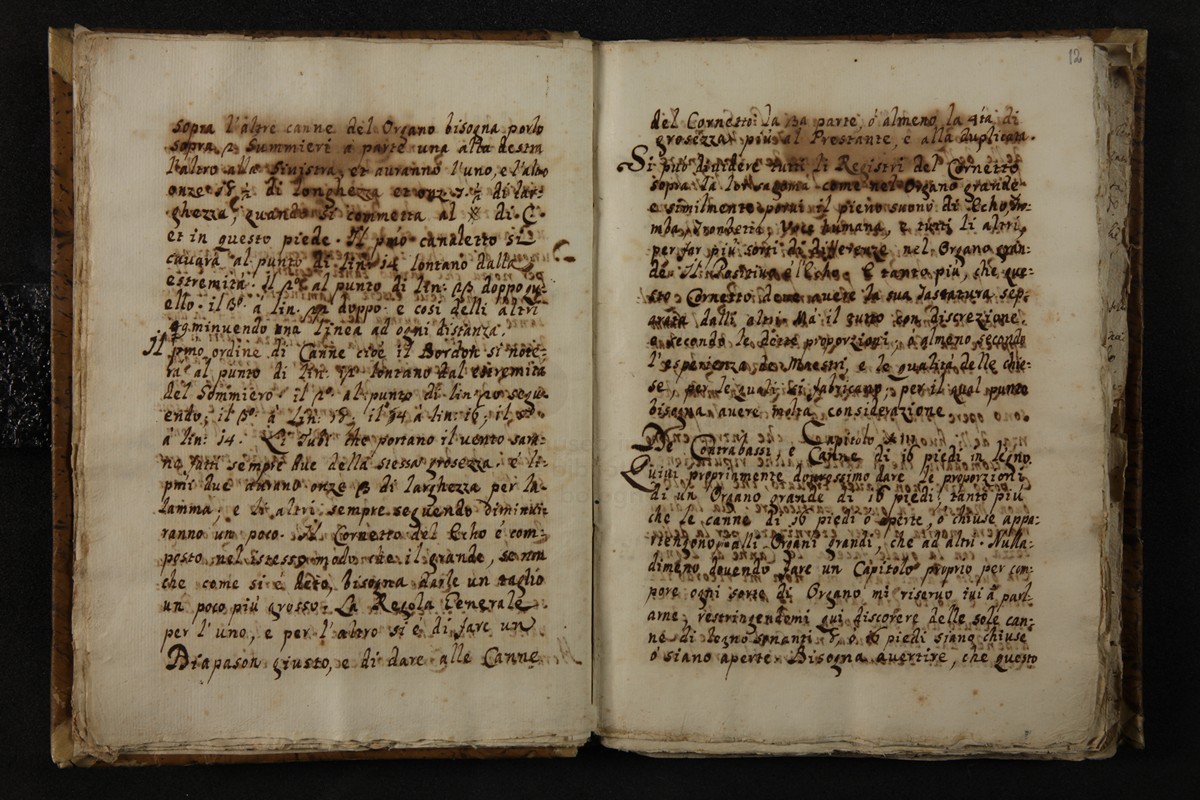 sopra l'altre canne del Organo bisogna porlo
sopra 2 Summieri à parte una alla destra
l'altro alla Sinistra, et auranno l'uno, e l'altro
onze 18 ½ di longhezza et onz 7 ½ di lar:
ghezza, quando si commetta al di C.
et in questo piede. Il pmo canaletto si
cauarà al punto di lin: 14 lontano dalla
estremità. Il 2º al punto di lin: doppo qu
ello: il 3º. à lin. doppo: e così delli altri
aggiminuendo una linea ad ogni distanza.
Il pmo ordine di Canne cioè il Bordon si note:
rà al punto di lin: lontano dal estremità
del Sommiero: il 2º. al punto di lin: 20 segu
endo; il 3º. à lin: 18; il 4 à lin: 16; il 5º
à lin: 14. Li Tubi che portano il vento saran:
no fatti sempre due della stessa grosezza, e li:
pmi due auranno onze 3 di larghezza per la:
lamma, e li altri sempre seguendo diminui:
ranno un poco. Il Cornetto del Echo è com:
posto nel istesso modo che il grande, se non
che come si è deto, bisogna darle un taglio
un poco più grosso. La Regola Generale
per l'uno, e per l'altro si è di fare un
Diapason giusto, e di dare alle Canne
12
del Cornetto la 3a parte, ò almeno la 4ta di
grosezza più al Prestante, e alla duplicata.
Si può diuidere tutti li Registri del Cornetto
sopra la lor sagoma come nel Organo grande
e similmente porui il pieno suono di Echo,
mba, Trombetta, Voce humana, e tutti li altri
per far più sorti di differenze nel Organo gran:
de. Il Positiuo e l'Echo. E tanto più, che que:
sto Cornetto deue auere la sua Tastatura sep:
arata dalli altri. Mà il tutto con discrezione
e secondo le dette proporzioni, o almeno secondo
l'esperienza de Maestri, e le qualità delle chie:
se, per le quali si fabricano, per il qual punto
bisogna auere molta considerazione.
Capitolo
De Contrabassi, e Canne di 16 piedi in legno.
Quiui propriamente douressimo dare le proporzioni
di un Organo grande di 16 piedi tanto più
che le canne di 16 piedi ò aperte, ò chiuse appa:
rtengono alli Organi grandi, che ad altri. Nulla:
dimeno douendo fare un Capitolo proprio per com:
pore ogni sorte di Organo mi riseruo iui à parl:
arne, restringendomi qui discorere delle sole can:
ne di legno sonanti piedi siano chiuse
ò siano aperte. Bisogna auertire, che questo